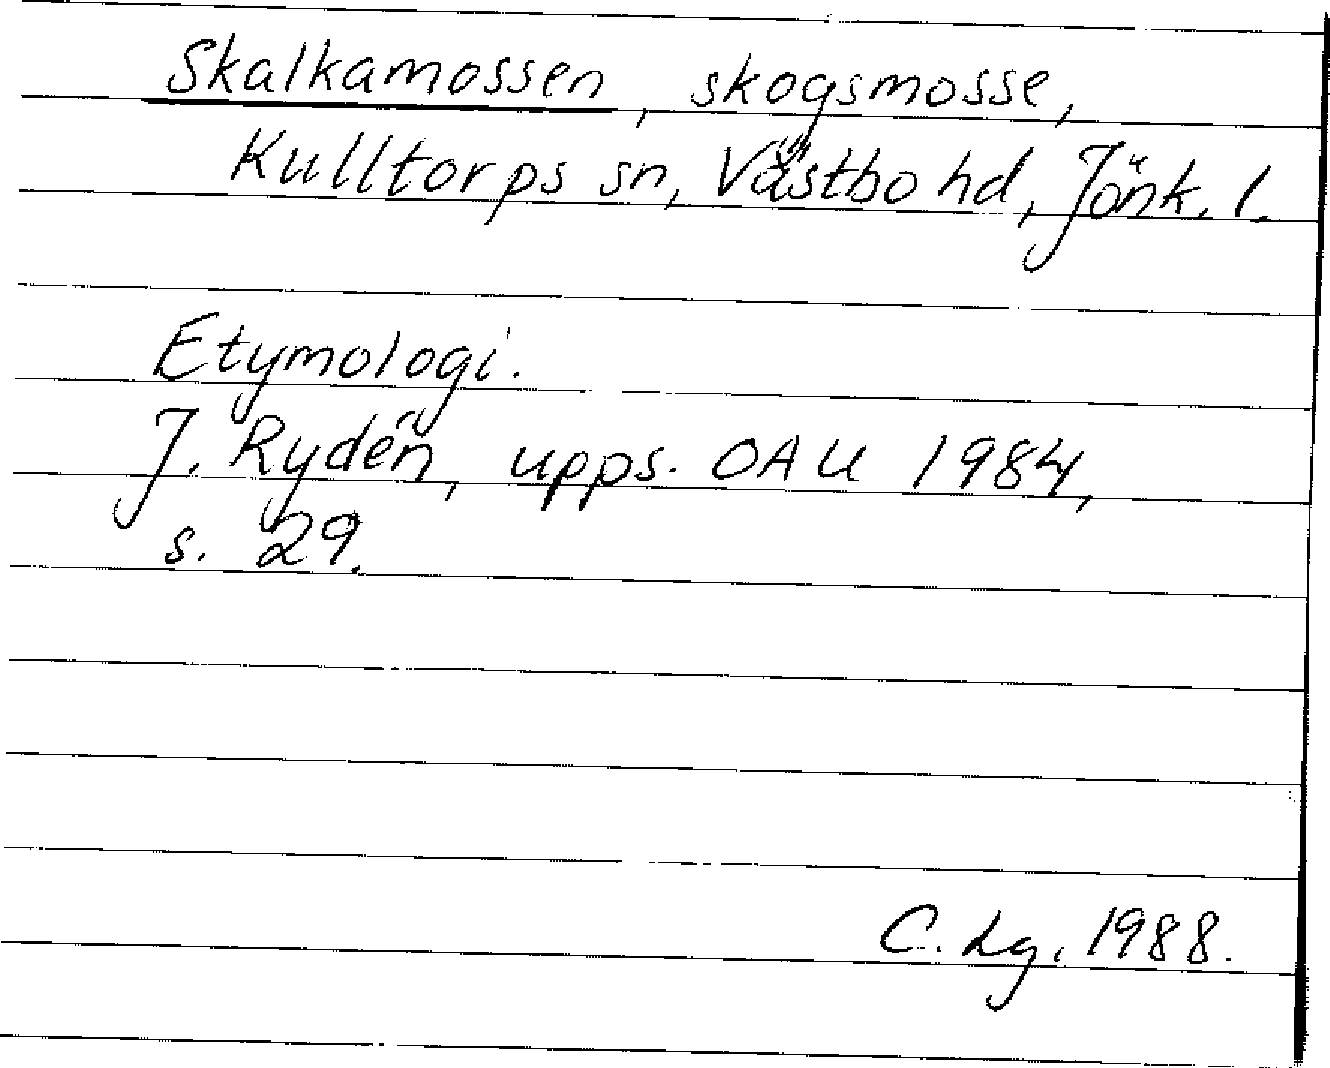 Skalkamossen, skogsmosse,
Kulltorps sn, Västbo hd, Jönk. l.
Etymologi.
J. Rydén, upps. OAU 1984,
s. 29.
C. Lg. 1988.